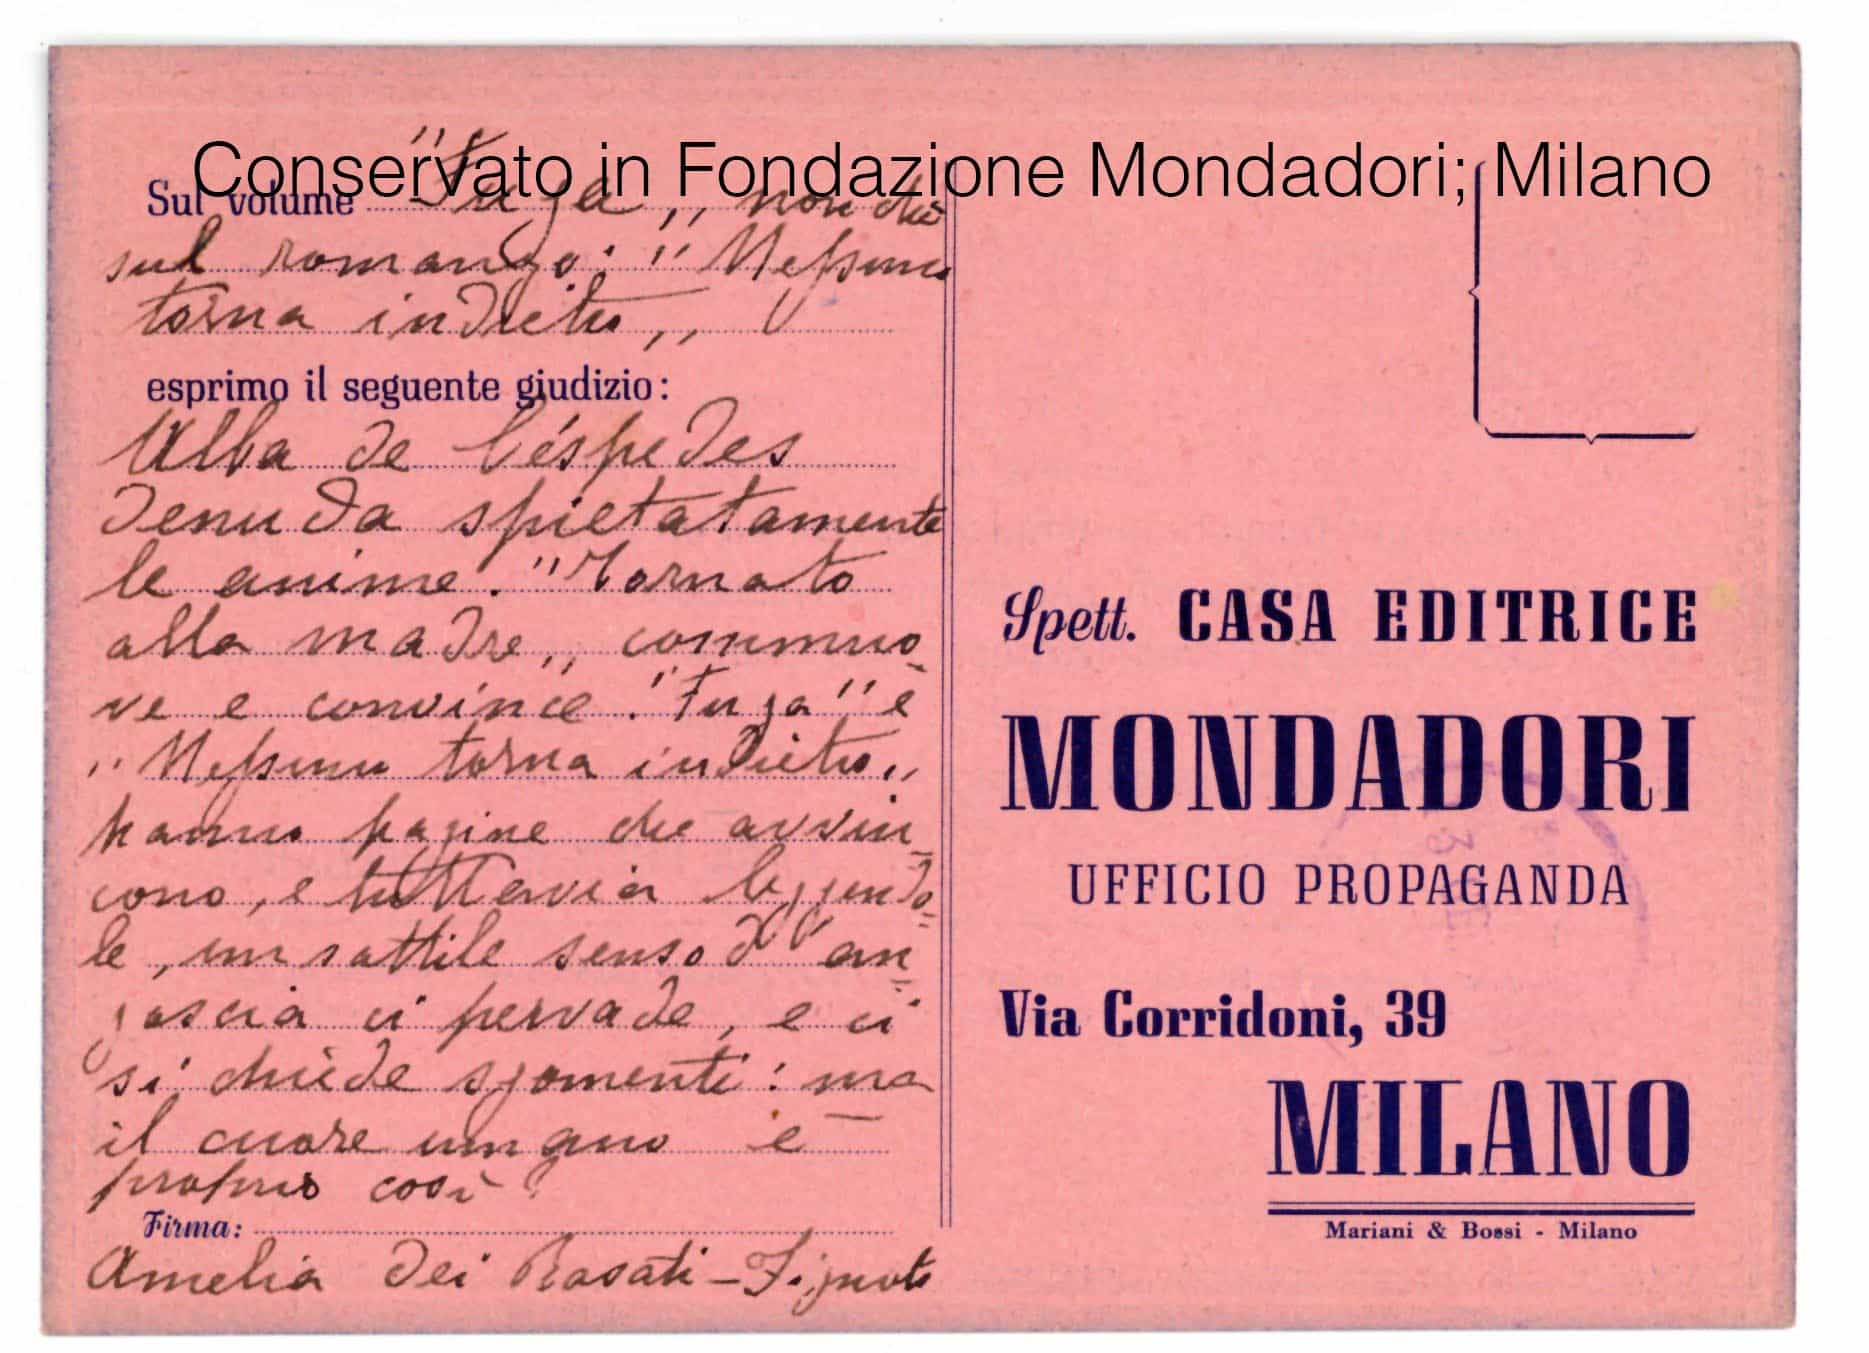 Conservato in Fondazione Mondadori; Milano
Sul volume "Fuga,, non chè
sul romanzo: "Nessuno
torna indietro,,
esprimo il seguente giudizio:
Alba de Céspedes
denuda spietatamente
le anime. "Tornato
alla madre,, commuo-
ve e convince. "Fuga" e
"Nessuno torna indietro,,
hanno pagine che avvin-
cono, e tuttavia leggendo-
le, un sottile senso d'an-
goscia ci pervade, e ci
si chiede sgomenti: ma
il cuore umano è
proprio così?
Firma:
Amelia Dei Rosati -
Spett. CASA EDITRICE
MONDADORI
UFFICIO PROPAGANDA
Via Corridoni, 39
MILANO
Mariani & Bossi - Milano